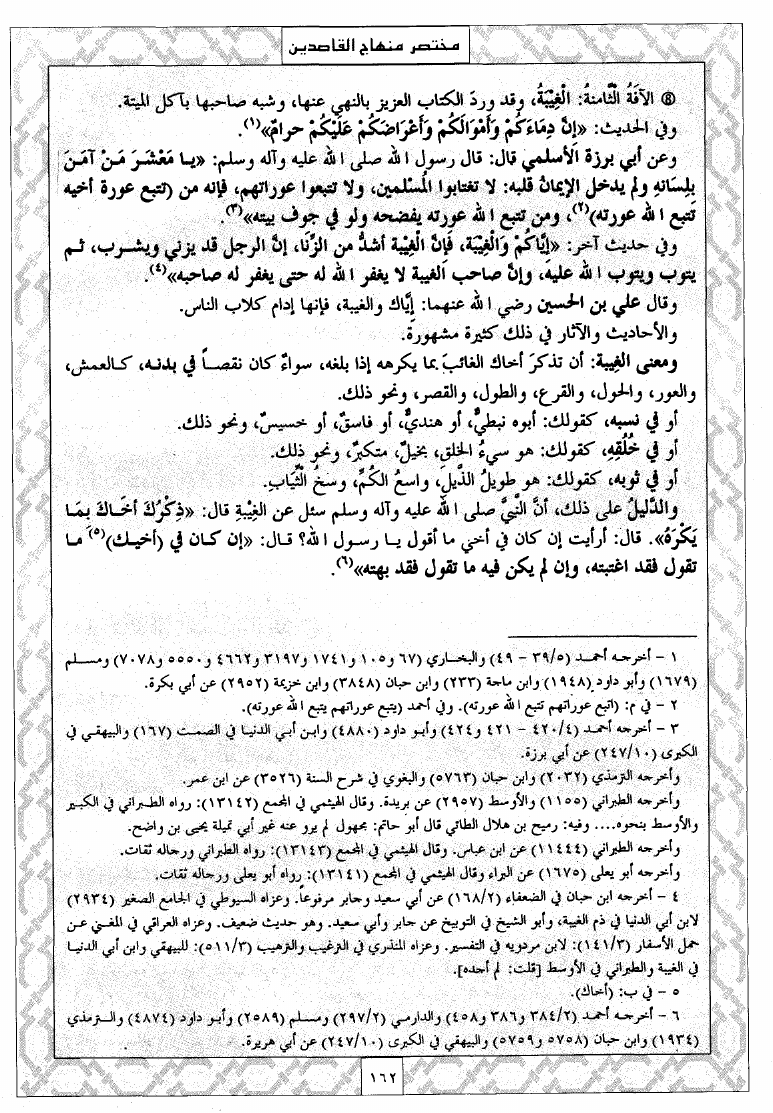 مختصر منهاج القاصدين
⑧ الآفَةُ الثَّامنةُ: الْغِيْبَةُ، وقد وردَ الكتاب العزيز بالنهي عنها، وشبه صاحبها بآكل الميتة.
وفي الحديث: «إِنَّ دِمَاءَكُمْ وَأَمْوَالَكُمْ وَأَعْرَاضَكُمْ عَلَيْكُمْ حَرامٌ»(١).
وعن أبي برزة الأسلمي قال: قال رسول الله صلى الله عليه وآله وسلم: «يـا مَعْشَـرَ مَـنْ آمَـنَ
بِلِسَانِهِ ولم يدخل الإيمانُ قلبه: لا تغتابوا المُسْلمين، ولا تتبعوا عوراتهم، فإنه من (تتبع عورة أخيه
تتبع الله عورته)(٢)، ومن تتبع الله عورته يفضحه ولو في جوف بيته»(٣).
وفي حديث آخر: «إِيَّاكُمْ وَالْغِيْبَةَ، فَإِنَّ الْغِيْبة أشدُّ من الزِّنَا، إنَّ الرجل قد يزني ويشـرب، ثـم
يتوب ويتوب الله عليه، وإنَّ صاحب الغيبة لا يغفر الله له حتى يغفر له صاحبه»(٤).
وقال علي بن الحسين رضي الله عنهما: إيَّاك والغيبة، فإنها إدام كلاب الناس.
والأحاديث والآثار في ذلك كثيرة مشهورة.
ومعنى الغيبة: أن تذكرَ أخاك الغائبَ بما يكرهه إذا بلغه، سواءٌ كان نقصـاً في بدنـه، كـالعمش،
والعور، والحول، والقرع، والطول، والقصر، ونحو ذلك.
أو في نسبه، كقولك: أبوه نبطيٌّ، أو هنديٌّ، أو فاسقٌ، أو خسيسٌ، ونحو ذلك.
أو في خُلُقِهِ، كقولك: هو سيءُ الخلقِ، بخيلٌ، متكبرٌ، ونحو ذلك.
أو في ثوبه، كقولك: هو طويلُ الذَّيلِ، واسعُ الكُمِّ، وسخُ الثِّيَابِ.
والدَّليلُ على ذلك، أنَّ النَّبيَّ صلى الله عليه وآله وسلم سئل عن الغِيْبَةِ قال: «ذِكْرُكَ أَخَـاكَ بِمَـا
يَكْرَهُ». قال: أرأيت إن كان في أخي ما أقول يـا رسـول الله؟ قـال: «إن كـان في (أخيـك)(٥) مـا
تقول فقد اغتبته، وإن لم يكن فيه ما تقول فقد بهته»(٦).
١ - أخرجه أحمـد (٣٩/٥ - ٤٩) والبخـاري (٦٧ و١٠٥ و١٧٤١ و٣١٩٧ و٤٦٦٢ و٥٥٥٠ و٧٠٧٨) ومسـلم
(١٦٧٩) وأبو داود (١٩٤٨) وابن ماجة (٢٣٣) وابن حبان (٣٨٤٨) وابن خزيمة (٢٩٥٢) عن أبي بكرة.
٢ - في م: (اتبع عوراتهم تتبع الله عورته). وفي أحمد (يتبع عوراتهم يتبع الله عورته).
٣ - أخرجـه أحمـد (٤٢٠/٤ - ٤٢١ و٤٢٤) وأبـو داود (٤٨٨٠) وابـن أبـي الدنيـا في الصمـت (١٦٧) والبيهقـي في
الكبرى (٢٤٧/١٠) عن أبي برزة.
وأخرجه الترمذي (٢٠٣٢) وابن حبان (٥٧٦٣) والبغوي في شرح السنة (٣٥٢٦) عن ابن عمر.
وأخرجه الطبراني (١١٥٥) والأوسط (٢٩٥٧) عن بريدة. وقال الهيثمي في المجمع (١٣١٤٢): رواه الطـبراني في الكبـير
والأوسط بنحوه.... وفيه: رميح بن هلال الطائي قال أبو حاتم: مجهول لم يرو عنه غير أبي تميلة يحيى بن واضح.
وأخرجه الطبراني (١١٤٤٤) عن ابن عباس. وقال الهيثمي في المجمع (١٣١٤٣): رواه الطبراني ورجاله ثقات.
وأخرجه أبو يعلى (١٦٧٥) عن البراء وقال الهيثمي في المجمع (١٣١٤١): رواه أبو يعلى ورجاله ثقات.
٤ - أخرجه ابن حبان في الضعفاء (١٦٨/٢) عن أبي سعيد وجابر مرفوعـاً. وعـزاه السيوطي في الجامع الصغير (٢٩٣٤)
لابن أبي الدنيا في ذم الغيبة، وأبو الشيخ في التوبيخ عن جابر وأبي سعيد. وهو حديث ضعيف. وعزاه العراقي في المغني عـن
حمل الأسفار (١٤١/٣): لابن مردويه في التفسير. وعزاه المنذري في الترغيب والترهيب (٥١١/٣): للبيهقي وابن أبي الدنيـا
في الغيبة والطبراني في الأوسط [قلت: لم أجده].
٥ - في ب: (أخاك).
٦ - أخرجـه أحمـد (٣٨٤/٢ و٣٨٦ و٤٥٨) والدارمـي (٢٩٧/٢) ومسـلم (٢٥٨٩) وأبـو داود (٤٨٧٤) والـترمذي
(١٩٣٤) وابن حبان (٥٧٥٨ و٥٧٥٩) والبيهقي في الكبرى (٢٤٧/١٠) عن أبي هريرة.
١٦٢